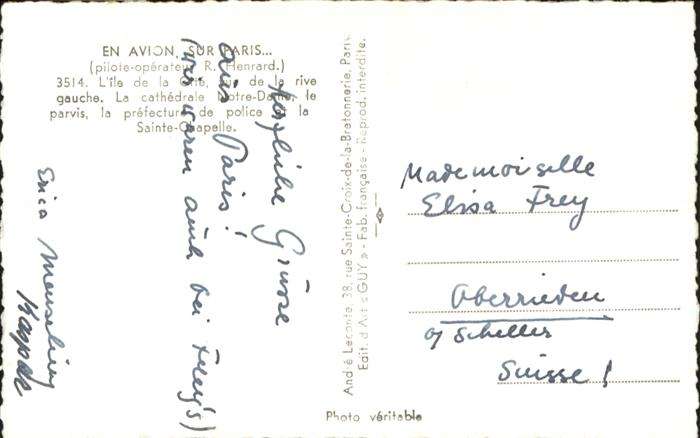 EN AVION SUR PARIS...
(pilote-opérateur R. Henrard.)
3514. L'île de la Cité, vue de la rive
gauche. La cathédrale Notre-Dame, le
parvis, la préfecture de police et la
Sainte-Chapelle.
Herzliche Grüsse
aus Paris!
(wir waren auch bei Frey's)
Erica
André Leconte, 38, rue Sainte-Croix-de-la-Bretonnerie, Paris
Edit. d'Art « GUY » - Fab. française - Reprod. interdite.
Mademoiselle
Elisa Frey
Oberrieden
Scheller
Suisse!
Photo véritable